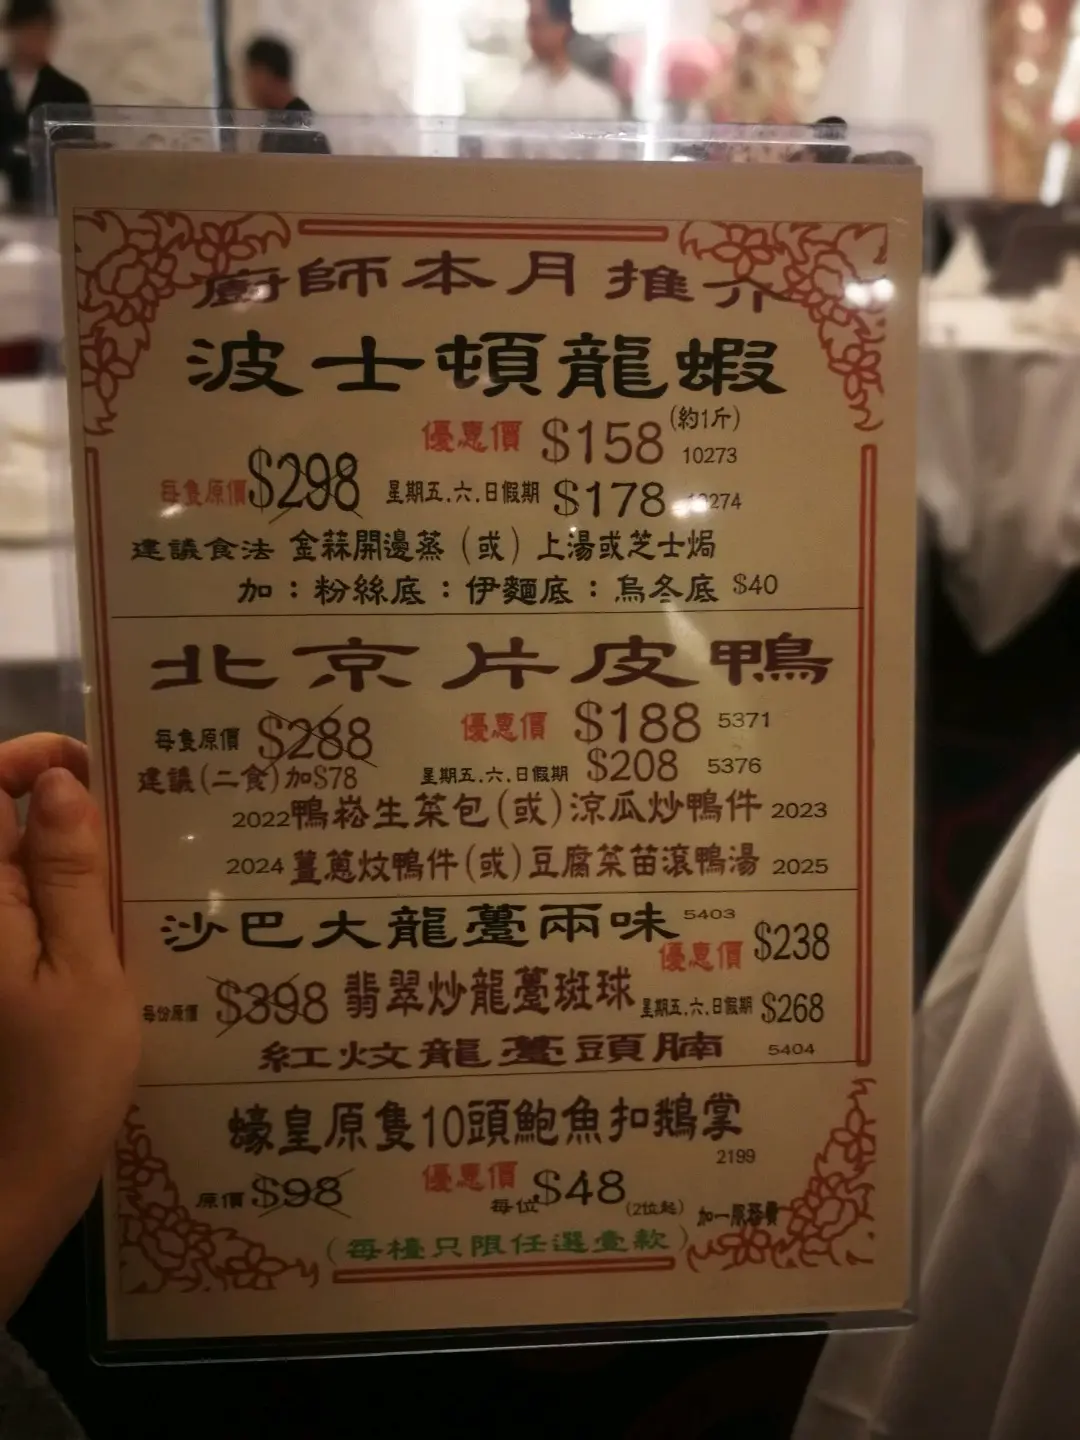 廚師本月推介
波士頓龍蝦
優惠價 $158 (約1斤) 10273
每隻原價 $298 星期五.六.日假期 $178 10274
建議食法 金蒜開邊蒸（或）上湯或芝士焗
加：粉絲底：伊麵底：烏冬底 $40
北京片皮鴨
每隻原價 $288 優惠價 $188 5371
建議(二食)加$78 星期五.六.日假期 $208 5376
2022鴨崧生菜包(或)涼瓜炒鴨件 2023
2024 薑蔥炆鴨件(或)豆腐菜苗滾鴨湯 2025
沙巴大龍躉兩味 5403
優惠價 $238
每份原價 $398 翡翠炒龍躉斑球 星期五.六.日假期 $268
紅炆龍躉頭腩 5404
蠔皇原隻10頭鮑魚扣鵝掌
2199
原價 $98 優惠價 每位$48(2位起) 加一服務費
(每檯只限任選壹款)